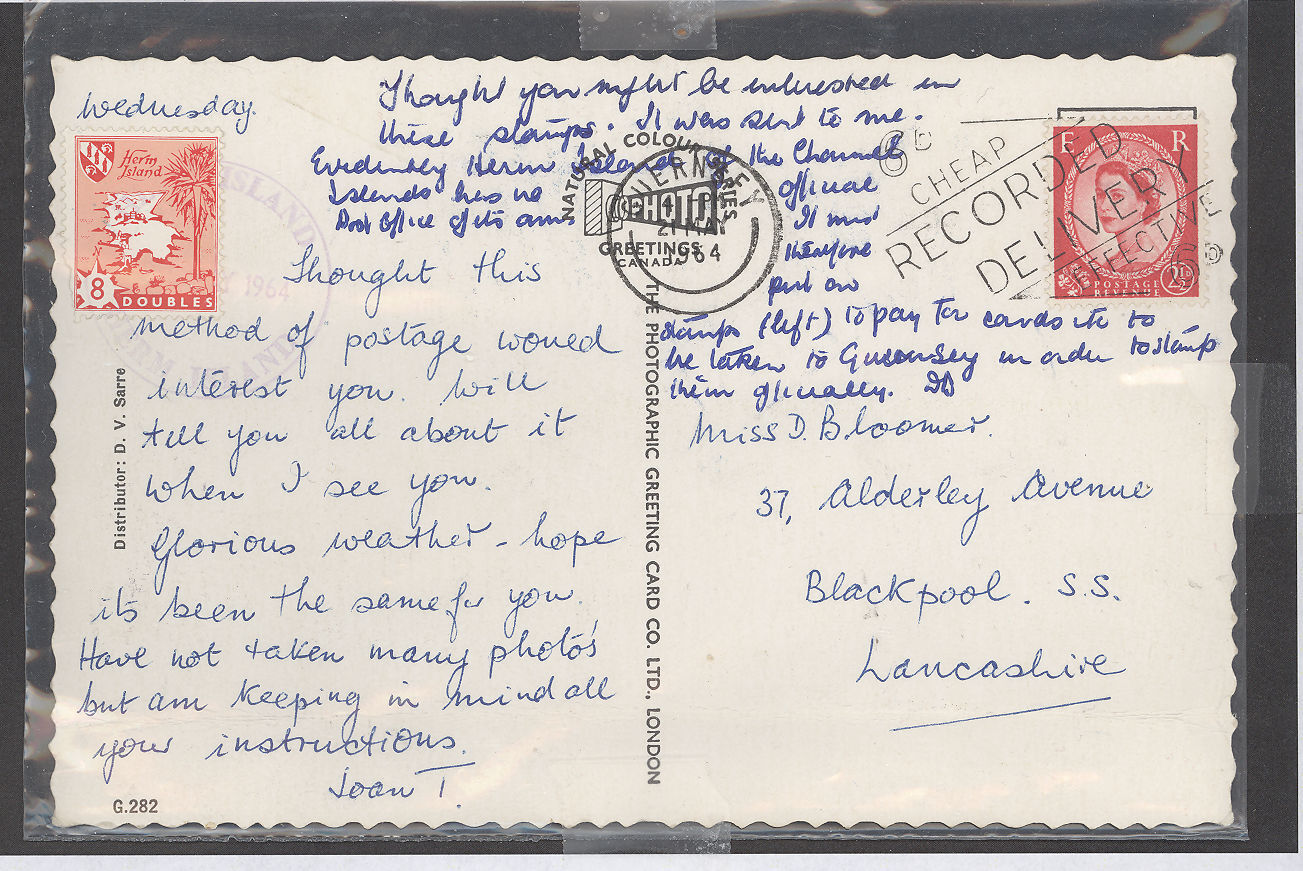 Wednesday.
Thought you might be interested in
these stamps. It was sent to me.
Evidently Herm Island of the Channel
Islands has no official
Post Office of its own It must
therefore
put on
stamps (left) to pay for cards etc to
be taken to Guernsey in order to stamp
them officially. DB
Herm
Island
8 DOUBLES
ISLAND
1964
ISLAND
Thought this
method of postage would
interest you. Will
tell you all about it
when I see you.
Glorious weather - hope
its been the same for you.
Have not taken many photo's
but am keeping in mind all
your instructions.
Joan T.
Distributor: D. V. Sarre
G.282
NATURAL COLOUR SERIES
PHOTO
GREETINGS
CANADA
THE PHOTOGRAPHIC GREETING CARD CO. LTD., LONDON
GUERNSEY
1964
CHEAP
RECORDED
DELIVERY
EFFECTIVE
E R
POSTAGE
REVENUE
2½D
Miss D. Bloomer.
37, Alderley Avenue
Blackpool. S.S.
Lancashire